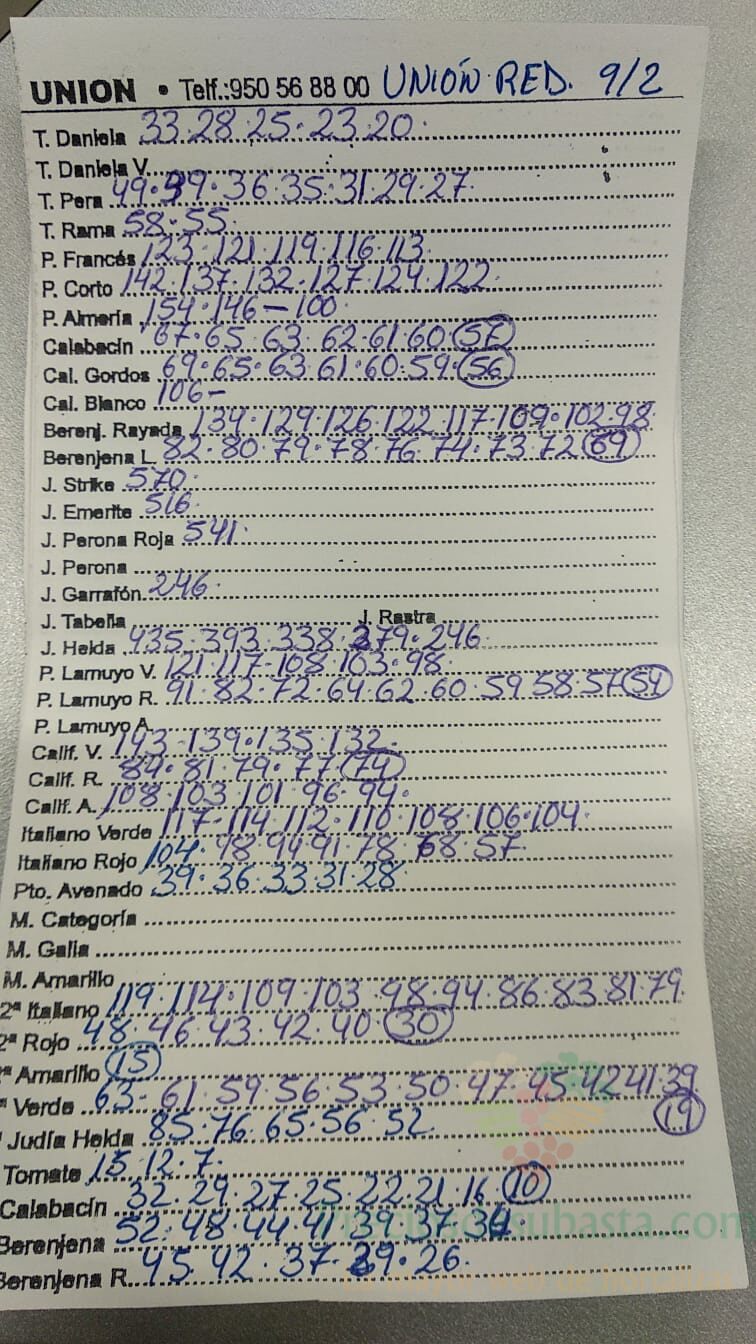 UNION • Telf.:950 56 88 00 UNIÓN RED. 9/2
T. Daniela 33·28·25·23·20·
T. Daniela V.
T. Pera 49·39·36·35·31·29·27·
T. Rama 58·55·
P. Francés 123·121·119·116·113·
P. Corto 142·137·132·127·124·122·
P. Almería 154·146—100·
Calabacín 67·65·63·62·61·60 57
Cal. Gordos 69·65·63·61·60·59·56
Cal. Blanco 106—
Berenj. Rayada 134·129·126·122·117·109·102·98·
Berenjena L 82·80·79·78·76·74·73·72 69
J. Strike 570·
J. Emerite 516·
J. Perona Roja 541·
J. Perona
J. Garrafón 246·
J. Tabella J. Rastra
J. Helda 435·393·338·279·246·
P. Lamuyo V. 121·117·108·103·98·
P. Lamuyo R. 91·82·72·64·62·60·59·58·57 54
P. Lamuyo A.
Calif. V. 143·139·135·132·
Calif. R. 84·81·79·77 74
Calif. A. 108·103·101·96·94·
Italiano Verde 117·114·112·110·108·106·104·
Italiano Rojo 104·98·94·91·78·68·57·
Pto. Avenado 39·36·33·31·28·
M. Categoría
M. Galia
M. Amarillo
2ª Italiano 119·114·109·103·98·94·86·83·81·79
2ª Rojo 48·46·43·42·40·30
ª Amarillo 15
ª Verde 63·61·59·56·53·50·47·45·42·41·39
19
Judía Helda 85·76·65·56·52
Tomate 15·12·7·
Calabacín 32·29·27·25·22·21·16 10
Berenjena 52·48·44·41·39·37·34·
subasta.com
Berenjena R. 45·42·37·29·26·